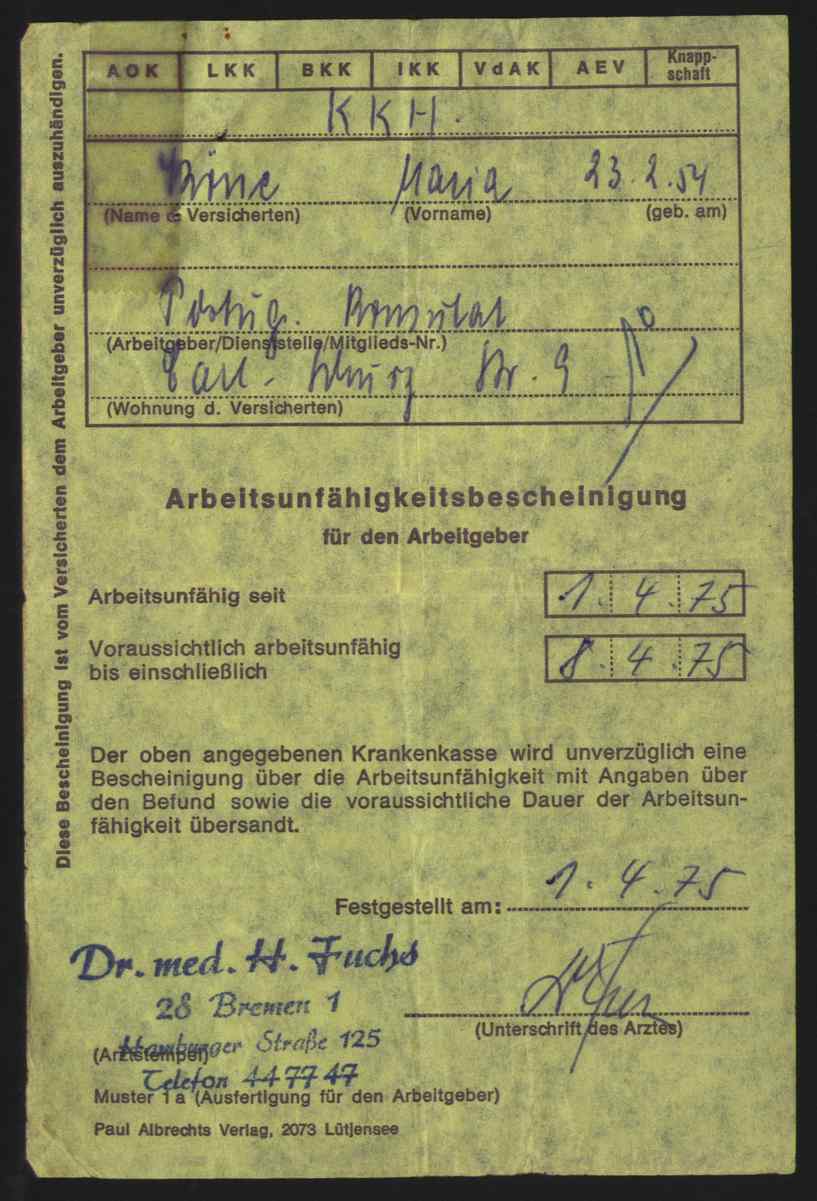 AOK LKK BKK IKK VdAK AEV Knapp-
schaft
KKH.
Maria 23.2.54
(Name d. Versicherten) (Vorname) (geb. am)
Portug. Konsulat
(Arbeitgeber/Dienststelle/Mitglieds-Nr.)
Carl-Schurz Str. 9
(Wohnung d. Versicherten)
Arbeitsunfähigkeitsbescheinigung
für den Arbeitgeber
Arbeitsunfähig seit 1.4.75
Voraussichtlich arbeitsunfähig
bis einschließlich 8.4.75
Der oben angegebenen Krankenkasse wird unverzüglich eine
Bescheinigung über die Arbeitsunfähigkeit mit Angaben über
den Befund sowie die voraussichtliche Dauer der Arbeitsun-
fähigkeit übersandt.
Festgestellt am: 1.4.75
Dr. med. H. Fuchs
28 Bremen 1
(Unterschrift des Arztes)
Hamburger Straße 125
(Arztstempel)
Telefon 44 77 47
Muster 1a (Ausfertigung für den Arbeitgeber)
Paul Albrechts Verlag, 2073 Lütjensee
Diese Bescheinigung ist vom Versicherten dem Arbeitgeber unverzüglich auszuhändigen.